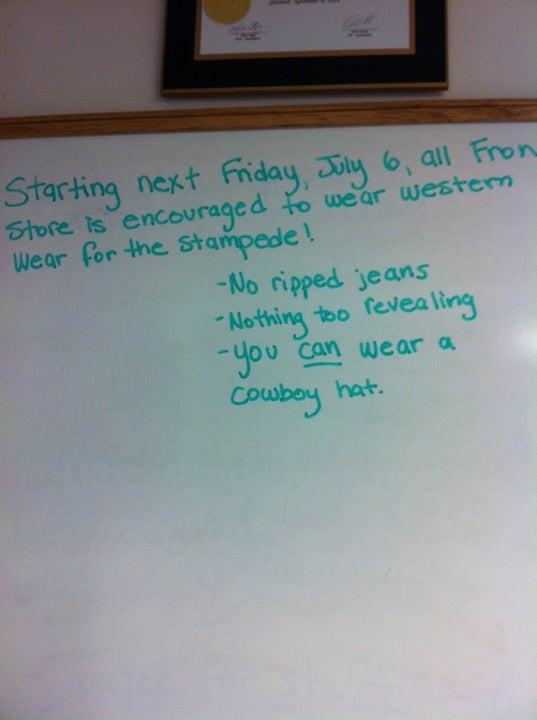 Starting next Friday, July 6, all Fron
Store is encouraged to wear western
wear for the Stampede!
-No ripped jeans
-Nothing too revealing
-you can wear a
cowboy hat.